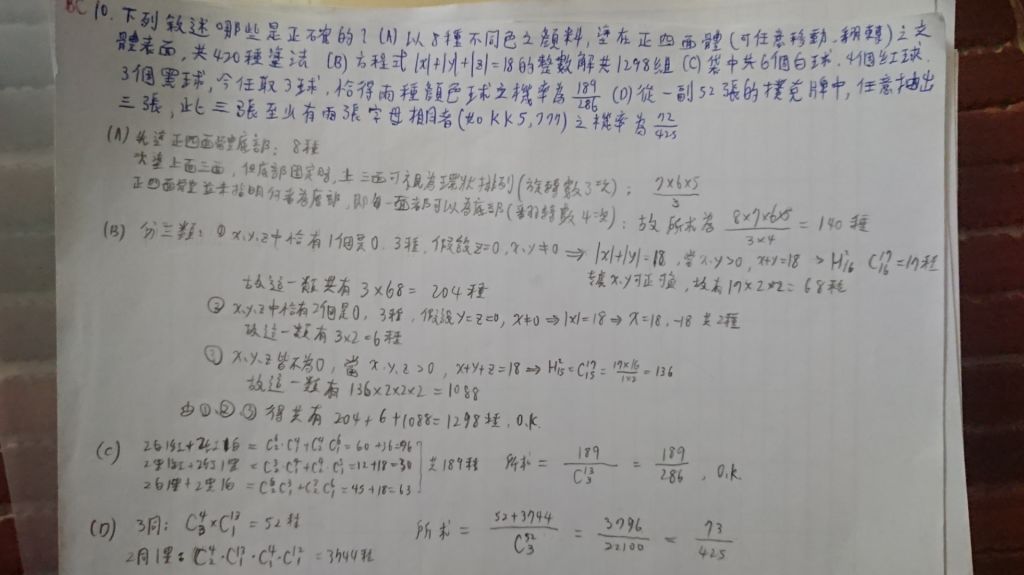 BC 10. 下列敘述哪些是正確的? (A) 以8種不同色之顏料,塗在正四面體(可任意移動、翻轉)之
體表面,共420種塗法 (B) 方程式 |x|+|y|+|z|=18的整數解共1298組 (C) 袋中共6個白球、4個紅球、
3個黑球,今任取3球,恰得兩種顏色球之機率為 189/286 (D) 從一副52張的撲克牌中,任意抽出
三張,此三張至少有兩張字母相同者(如KK5,777)之機率為 72/425
(A) 先塗正四面體底部: 8種
次塗上面三面,但底部固定時,上三面可視為環狀排列(旋轉數3次); 7×6×5/3
正四面體並未指明何者為底部,即每一面都可以為底部(翻轉數4次); 故所求為 8×7×6×5/3×4 = 140種
(B) 分三類: ① x,y,z中恰有1個是0, 3種, 假設z=0, x,y≠0 ⇒ |x|+|y|=18, 當x,y>0, x+y=18 → H²₁₆ C¹⁷₁₆=17種
故這一類共有 3×68= 204種
x,y可正負, 故有17×2×2=68種
② x,y,z中恰有2個是0, 3種, 假設y=z=0, x≠0 ⇒ |x|=18 ⇒ x=18,-18 共2種
故這一類有 3×2=6種
x,y,z皆不為0, 當x,y,z>0, x+y+z=18 ⇒ = C¹⁷₁₅ = 17×16/1×2 = 136
故這一類有 136×2×2×2=1088
由①、②、③得共有 204+6+1088=1298種, O.K.
(C) 2白1紅+2紅1白 = C⁶₂·C⁴₁+C⁴₂C⁶₁=60+36=96
2黑1紅+2紅1黑 = C³₂·C⁴₁+C⁴₂·C³₁=12+18=30 共189種 所求= 189/C¹³₃ = 189/286, O.K.
2白1黑+2黑1白 = C⁶₂C³₁+C³₂C⁶₁=45+18=63
(D) 3同: C⁴₃×C¹³₁=52種 所求= 52+3744/C⁵²₃ = 3796/22100 = 73/425
2同1異: C⁴₂·C¹³₁·C⁴₁·C¹²₁=3744種